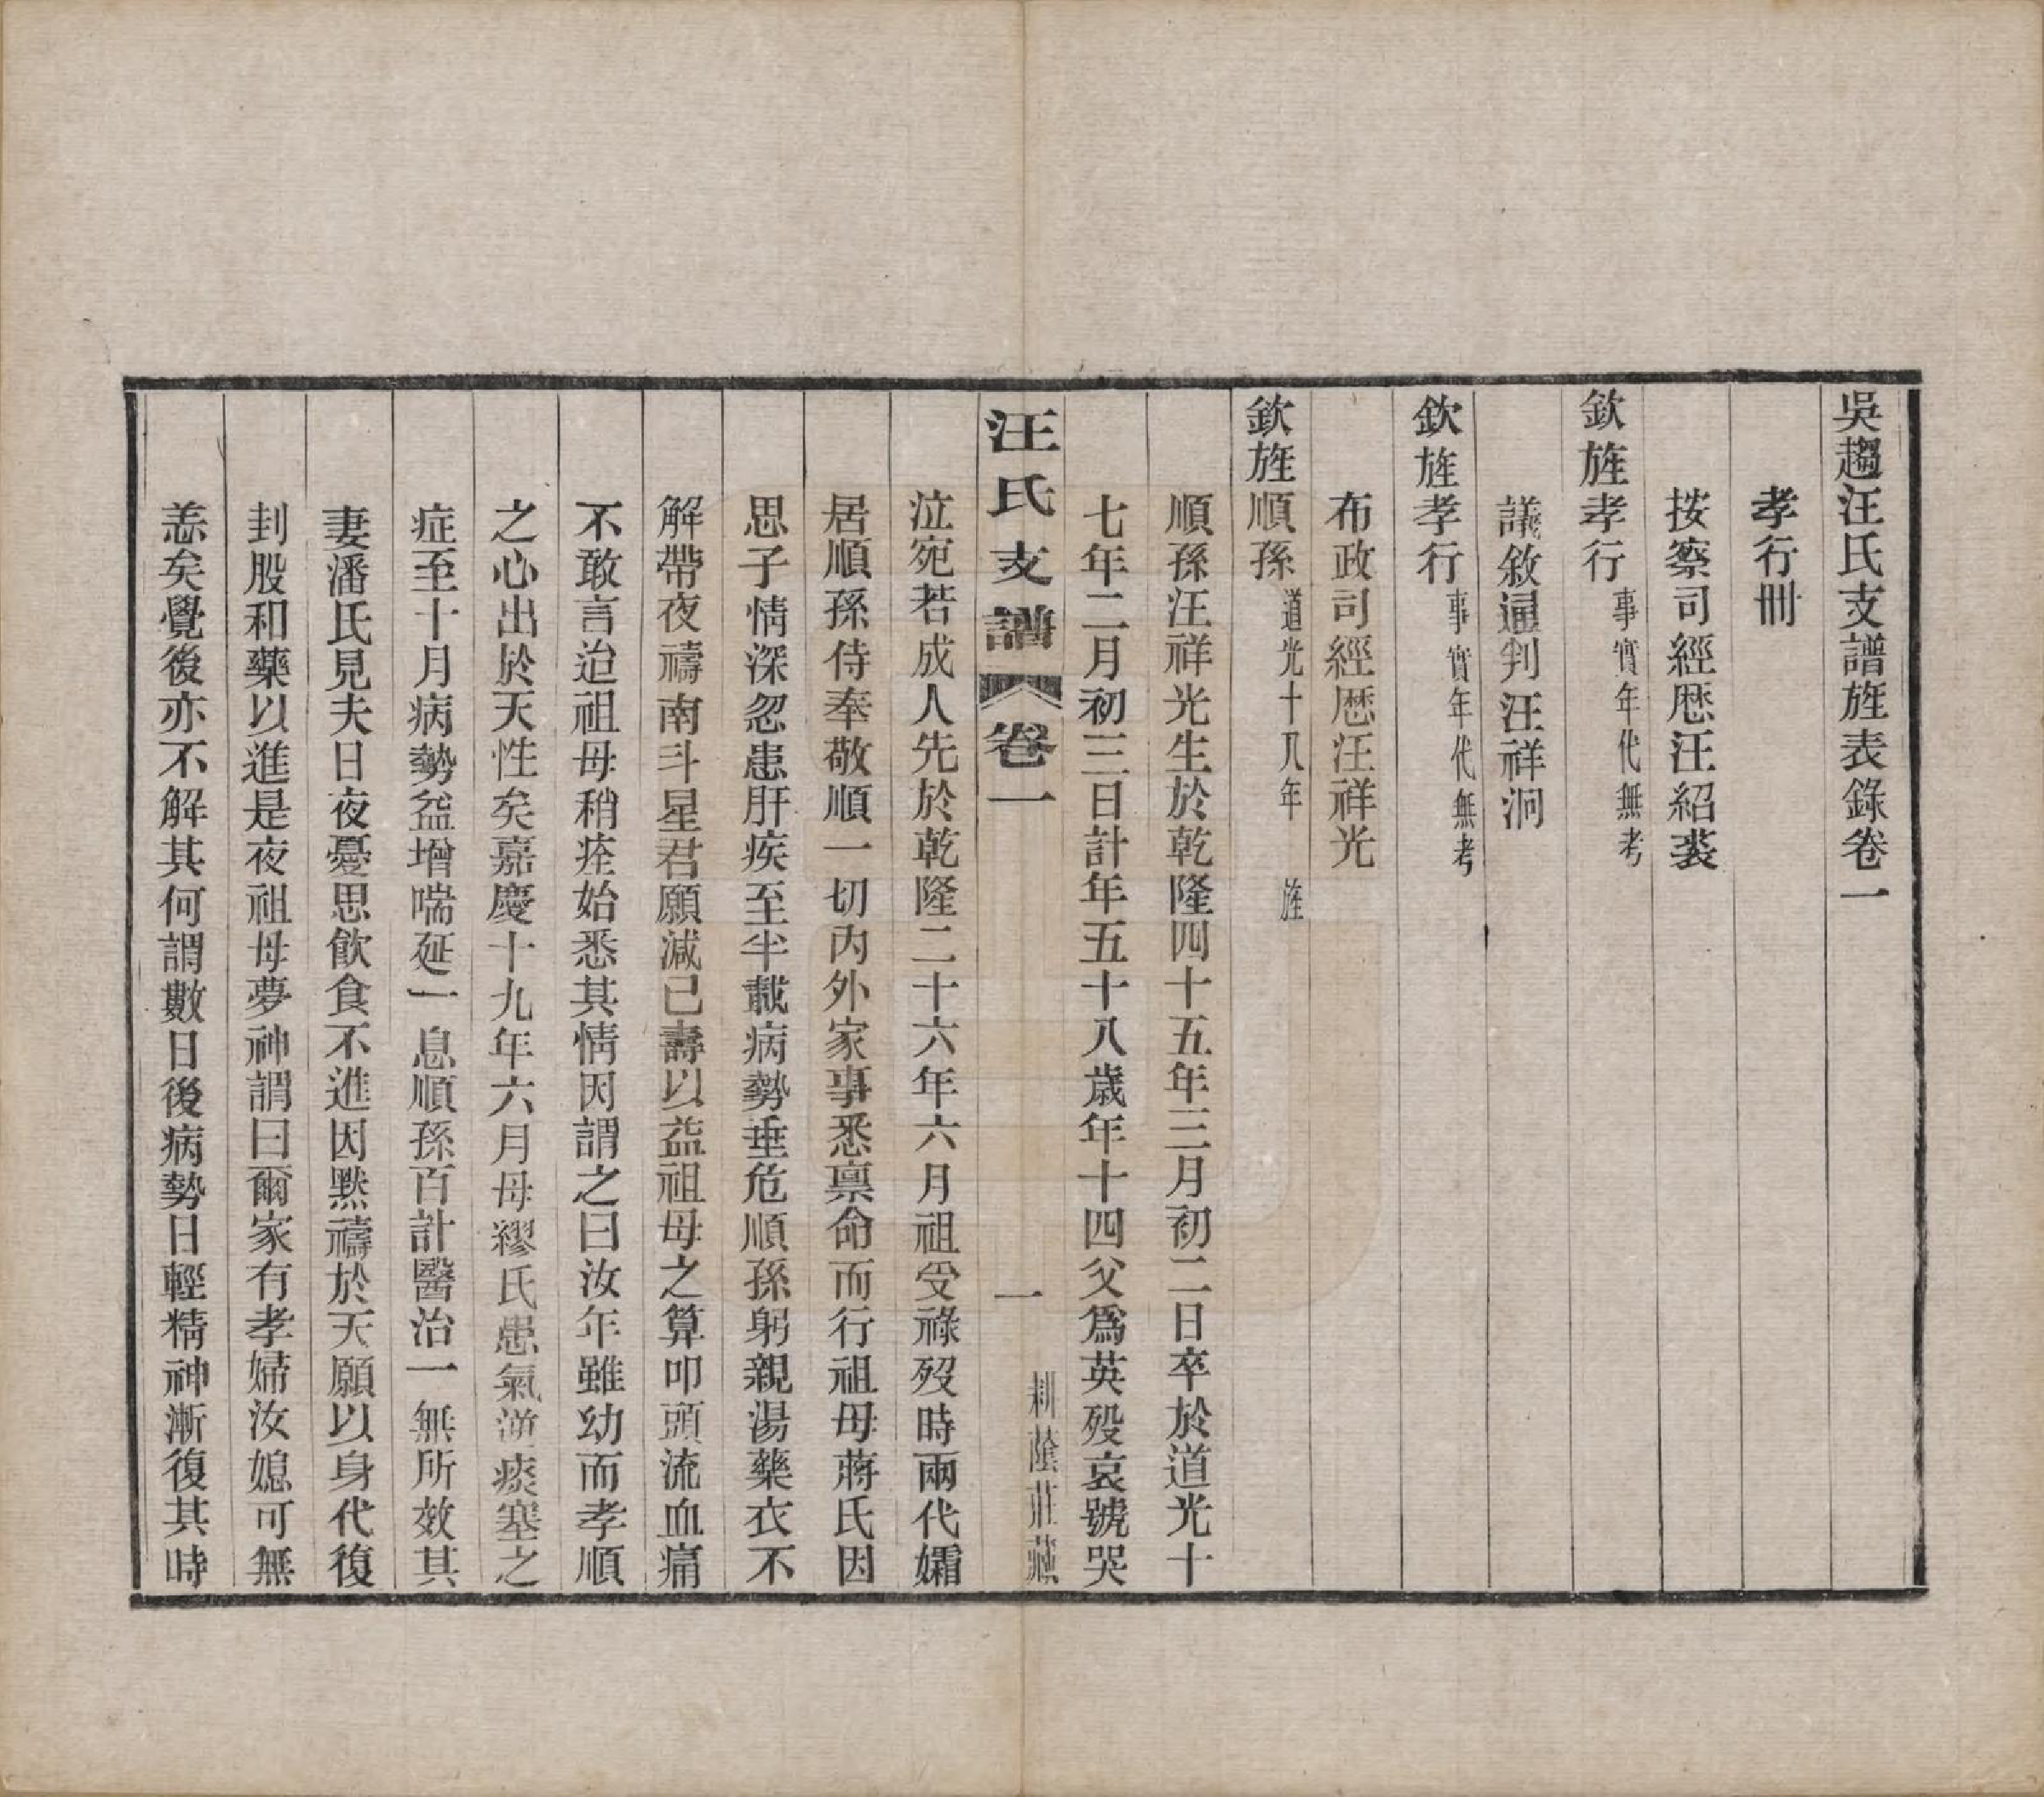 吳趨汪氏支譜旌表錄卷一
孝行冊
按察司經厯汪紹裘
欽旌孝行事實年代無考
議敘通判汪祥泂
欽旌孝行事實年代無考
布政司經厯汪祥光
欽旌順孫道光十八年旌
順孫汪祥光生於乾隆四十五年三月初二日卒於道光十
七年二月初三日計年五十八歲年十四父爲英歿哀號哭
汪氏支譜 卷一 一 耕蔭莊藏
泣宛若成人先於乾隆二十六年六月祖受祿歿時兩代孀
居順孫侍奉敬順一切內外家事悉禀命而行祖母蔣氏因
思子情深忽患肝疾至半載病勢垂危順孫躬親湯藥衣不
解帶夜禱南斗星君願減己壽以益祖母之算叩頭流血痛
不敢言迨祖母稍痊始悉其情因謂之曰汝年雖幼而孝順
之心出於天性矣嘉慶十九年六月母繆氏患氣逆痰塞之
症至十月病勢益增喘延一息順孫百計醫治一無所效其
妻潘氏見夫日夜憂思飲食不進因默禱於天願以身代復
刲股和藥以進是夜祖母夢神謂曰爾家有孝婦汝媳可無
恙矣覺後亦不解其何謂數日後病勢日輕精神漸復其時